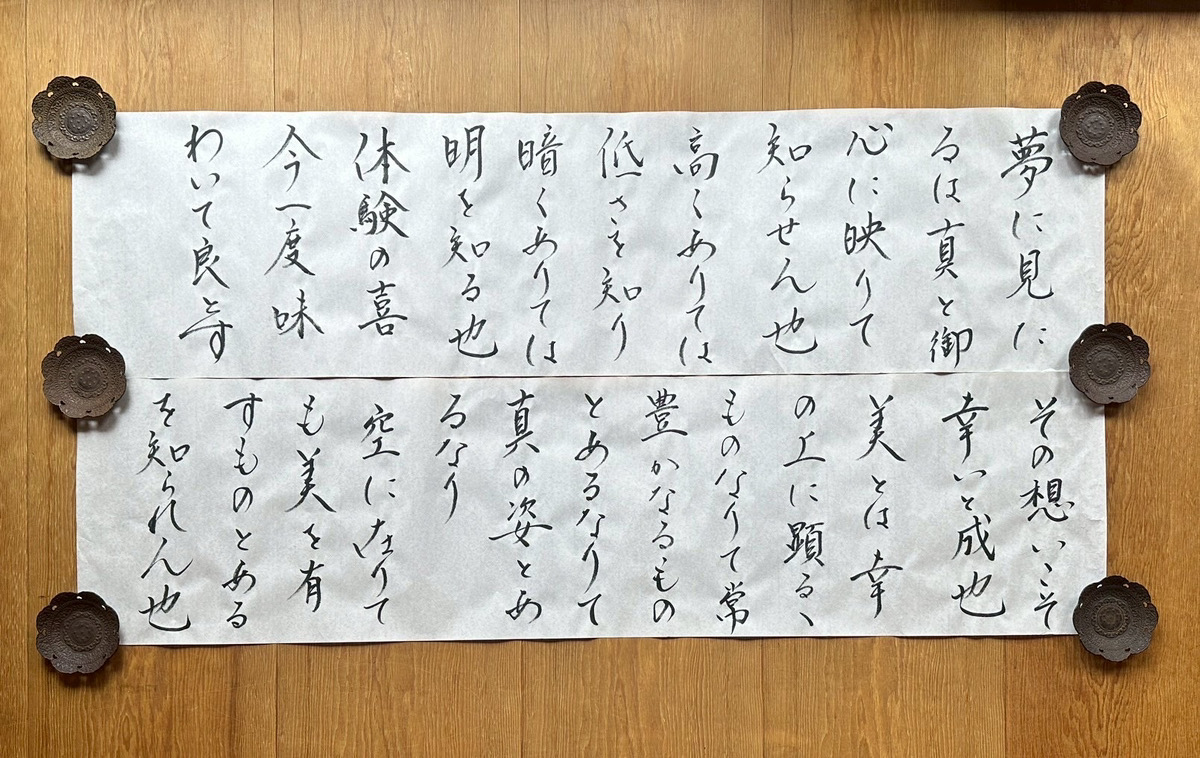 夢に見に
るは真と御
心に映りて
知らせん也
高くありては
低さを知り
暗くありては
明を知る也
体験の喜
今一度味
わいて良とす
その想いこそ
幸いと成也
美とは幸
の上に顕るヽ
ものなりて常
豊かなるもの
とあるなりて
真の姿とあ
るなり
空に在りて
も美を有
すものとある
を知られん也